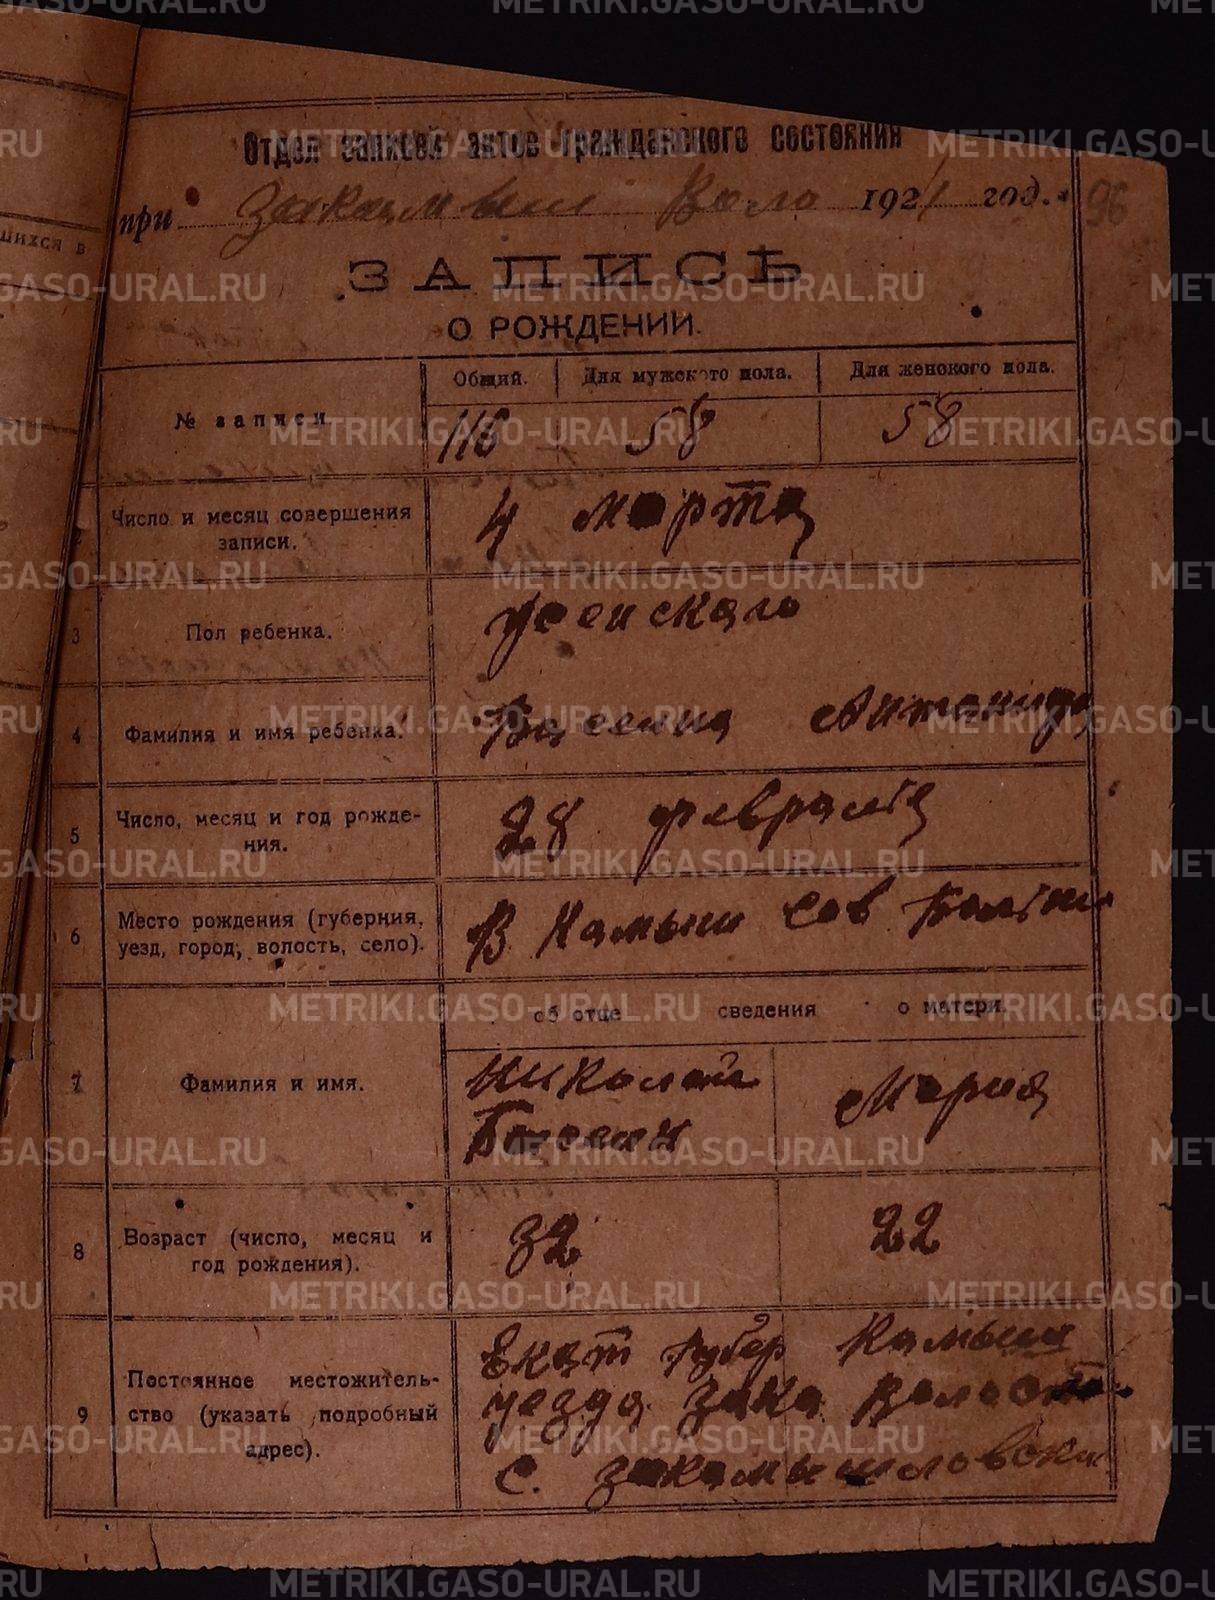 Отдел записей актов гражданского состояния
при Закамыш Воло 1921 год. 96
ЗАПИСЬ
О РОЖДЕНИИ.
№ записи
Общий. Для мужского пола. Для женского пола.
116 58 58
2 Число и месяц совершения
записи.
4 марта
3 Пол ребенка.
женскаго
4 Фамилия и имя ребенка.
5 Число, месяц и год рожде-
ния.
28 февраля
6 Место рождения (губерния,
уезд, город, волость, село).
В Камыш сов больни
об отце сведения о матери.
7 Фамилия и имя.
Николай
Мария
8 Возраст (число, месяц и
год рождения).
32 22
9 Постоянное местожитель-
ство (указать подробный
адрес).
Екат Губер Камыш
уезда Зака Волости
с. Закамышловски
шихся в
METRIKI.GASO-URAL.RU